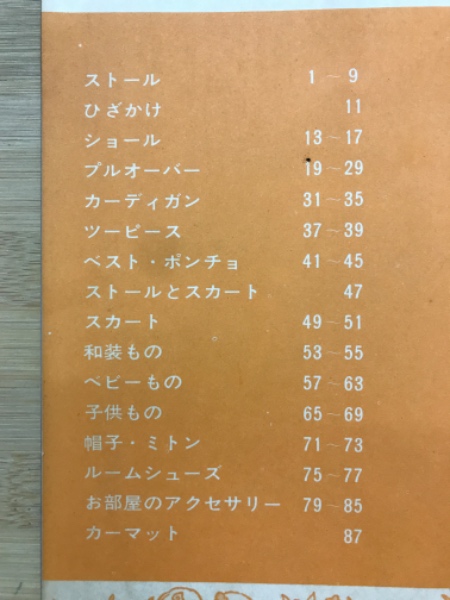 ストール 1～9
ひざかけ 11
ショール 13～17
プルオーバー 19～29
カーディガン 31～35
ツーピース 37～39
ベスト・ポンチョ 41～45
ストールとスカート 47
スカート 49～51
和装もの 53～55
ベビーもの 57～63
子供もの 65～69
帽子・ミトン 71～73
ルームシューズ 75～77
お部屋のアクセサリー 79～85
カーマット 87